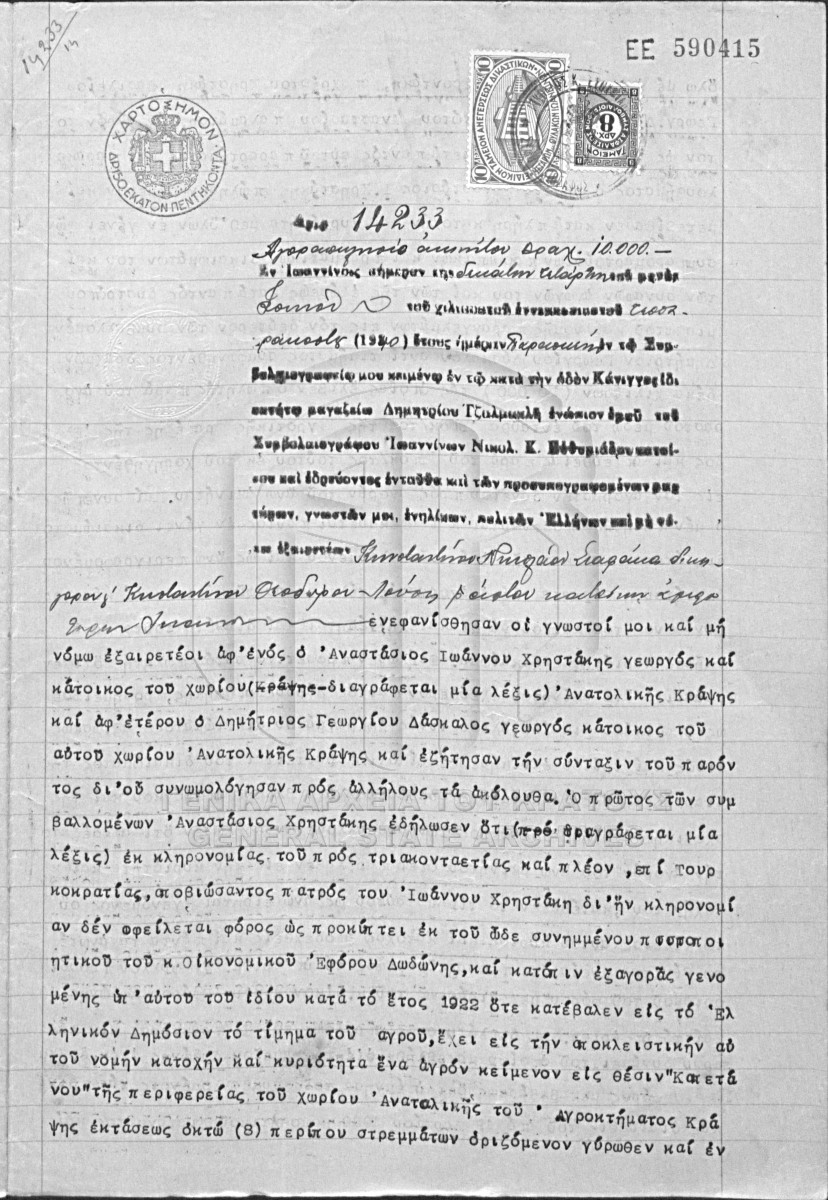 14233
14
ΕΕ 590415
ΧΑΡΤΟΣΗΜΟΝ
ΔΡ150 ΕΚΑΤΟΝ ΠΕΝΤΗΚΟΝΤΑ
10 10
10 10
ΤΑΜΕΙΟΝ
8
ΔΡΧ
Αριθ 14233
Αγοραπωλησία ἀκινήτου δραχ. 10.000.—
Ἐν Ἰωαννίνοις σήμερον τῇ δεκάτῃ τετάρτῃ τοῦ μηνὸς
τοῦ χιλιοστοῦ ἐννεακοσιοστοῦ τεσσα
ρακοστοῦ (1940) ἔτους ἡμέραν Παρασκευὴν ἐν τῷ Συμ-
βολαιογραφείῳ μου κειμένῳ ἐν τῷ κατὰ τὴν ὁδὸν Κάνιγγος ἰδι
οκτήτῳ μαγαζείῳ Δημητρίου Τζαλμακλῆ ἐνώπιον ἐμοῦ τοῦ
Συμβολαιογράφου Ἰωαννίνων Νικολ. Κ. κατοί-
κου καὶ ἑδρεύοντος ἐνταῦθα καὶ τῶν προσυπογραφομένων μαρ
τύρων, γνωστῶν μοι, ἐνηλίκων, πολιτῶν Ἑλλήνων καὶ μὴ νό-
μῳ ἐξαιρετέων Κωνσταντίνου Νικολάου δικη
γόρου Κωνσταντίνου Θεοδώρου ράπτου κατοίκων
ἐνεφανίσθησαν οἱ γνωστοί μοι καί μή
νόμω ἐξαιρετέοι ἀφ'ἑνός ὁ 'Αναστάσιος Ἰωάννου Χρηστάκης γεωργός καί
κάτοικος τοῦ χωρίου(Κράψης-διαγράφεται μία λέξις)'Ανατολικῆς Κράψης
καί ἀφ'ἑτέρου ὁ Δημήτριος Γεωργίου Δάσκαλος γεωργός κάτοικος τοῦ
αὐτοῦ χωρίου 'Ανατολικῆς Κράψης καί ἐζήτησαν τήν σύνταξιν τοῦ παρόν
τος δι'οὗ συνωμολόγησαν πρός ἀλλήλους τά ἀκόλουθα. Ὁ πρῶτος τῶν συμ
βαλλομένων 'Αναστάσιος Χρηστάκης ἐδήλωσεν ὅτι(πρό διαγράφεται μία
λέξις) ἐκ κληρονομίας τοῦ πρός τριακονταετίας καί πλέον ,ἐπί Τουρ
κοκρατίας,ἀποβιώσαντος πατρός του Ἰωάννου Χρηστάκη δι'ἥν κληρονομί
αν δέν ὀφείλεται φόρος ὡς προκύπτει ἐκ τοῦ ὧδε συνημμένου πιστοποι
ητικοῦ τοῦ κ.Οἰκονομικοῦ Ἐφόρου Δωδώνης,καί κατόπιν ἐξαγορᾶς γενο
μένης ὑπ'αὐτοῦ τοῦ ἰδίου κατά τό ἔτος 1922 ὅτε κατέβαλεν εἰς τό Ἑλ
ληνικόν Δημόσιον τό τίμημα τοῦ ἀγροῦ,ἔχει εἰς τήν ἀποκλειστικήν αὐ
τοῦ νομήν κατοχήν καί κυριότητα ἕνα ἀγρόν κείμενον εἰς θέσιν"Καπετά
νου"τῆς περιφερείας τοῦ χωρίου 'Ανατολικῆς τοῦ 'Αγροκτήματος Κρά
ψης ἐκτάσεως ὀκτώ (8) περίπου στρεμμάτων ὁριζόμενον γύρωθεν καί ἐν
ΓΕΝΙΚΑ ΑΡΧΕΙΑ ΤΟΥ ΚΡΑΤΟΥΣ
GENERAL STATE ARCHIVES